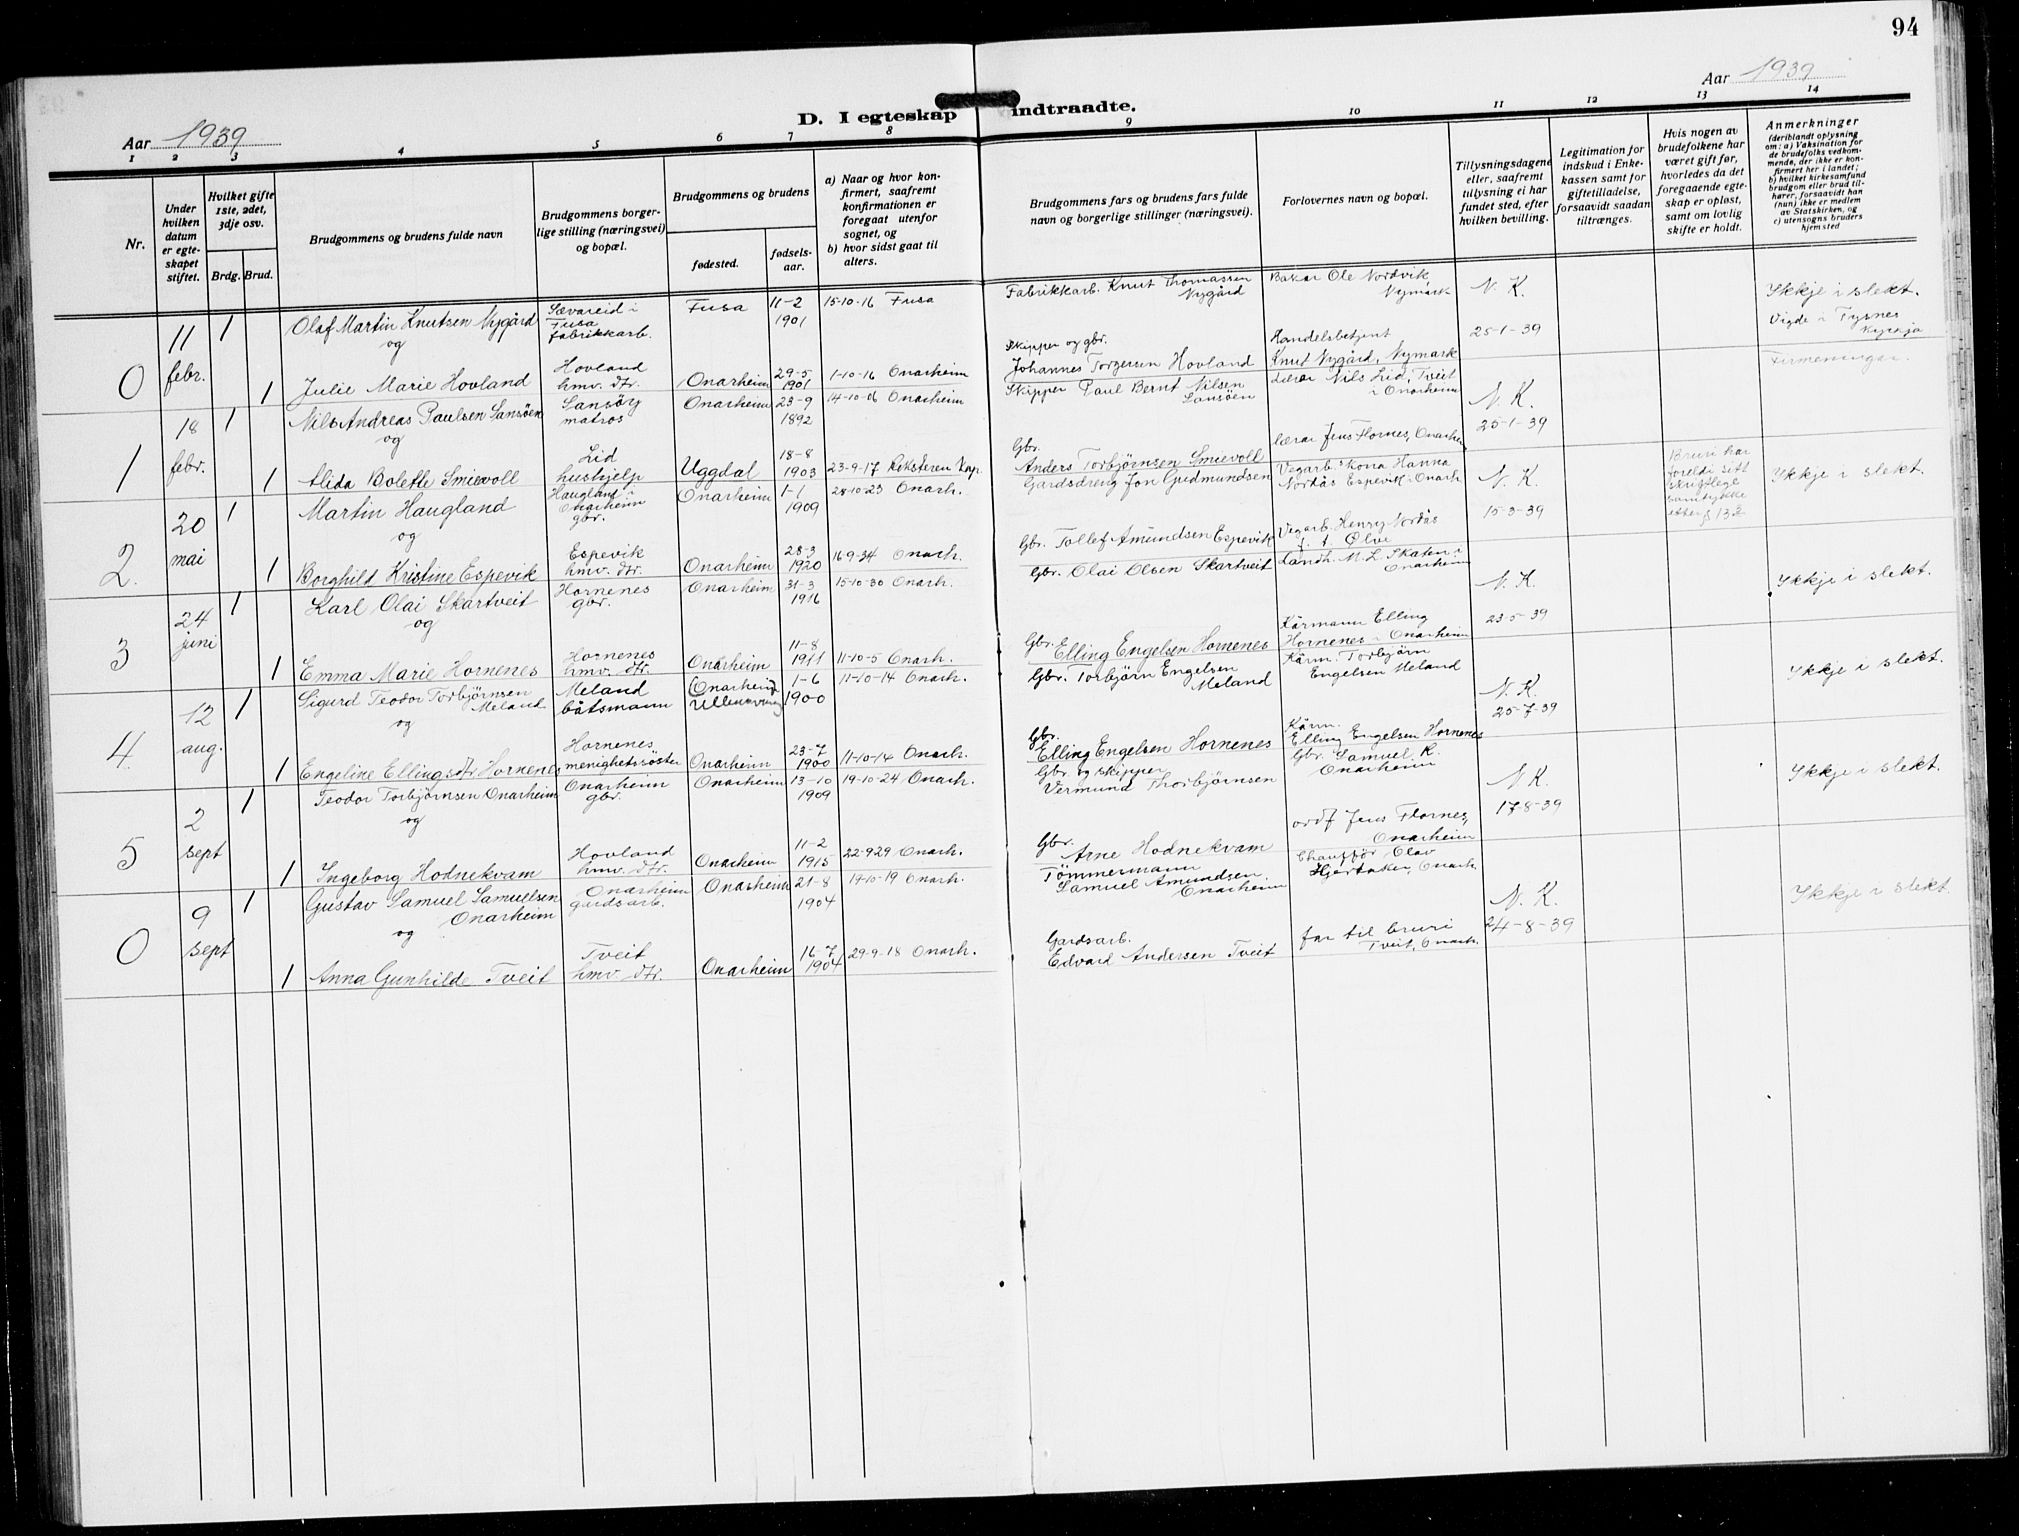 94
Aar 1939
Aar 1939
D. I egteskap indtraadte.
1 2 3 4 5 6 7 8 9 10 11 12 13 14
Nr.
Under hvilken datum er egteskapet stiftet.
Hvilket gifte 1ste, 2det, 3dje osv.
Brdg. Brud.
Brudgommens og brudens fulde navn
Brudgommens borgerlige stilling (næringsvei) og bopæl.
Brudgommens og brudens
fødested.
fødselsaar.
a) Naar og hvor konfirmert, saafremt konfirmationen er foregaat utenfor sognet, og
b) hvor sidst gaat til alters.
Brudgommens fars og brudens fars fulde navn og borgerlige stillinger (næringsvei).
Forlovernes navn og bopæl.
Tillysningsdagene eller, saafremt tillysning ei har fundet sted, efter hvilken bevilling.
Legitimation for indskud i Enkekassen samt for giftetilladelse, forsaavidt saadan tiltrænges.
Hvis nogen av brudefolkene har været gift før, hvorledes da det foregaaende egteskap er opløst, samt om lovlig skifte er holdt.
Anmerkninger
(deriblandt oplysning om: a) Vaksination for de brudefolks vedkommende, der ikke er konfirmert her i landet;
b) hvilket kirkesamfund brudgom eller brud tilhører, forsaavidt han (hun) ikke er medlem av Statskirken, og
c) utensogns bruders hjemsted
0
11 febr.
1
Olaf Martin Knutsen Nygård
og
Sævareid i Fusa
fabrikkarb.
Fusa
11-2
1901
15-10-16 Fusa
Fabrikkarb. Knut Thomassen
Nygård
Bakar Ole Nordvik
Nymark
N. K.
25-1-39
Ikkje i slekt.
Vigde i Tysnes
kyrkja
1
Julie Marie Hovland
Hovland
hmv. dtr.
Onarheim
29-5
1901
1-10-16 Onarheim
Skipper og gbr.
Johannes Torgersen Hovland
Handelsbetjent
Knut Nygård, Nymark
1
18 febr.
1
Nils Andreas Paulsen Sansöen
og
Sansöy
matros
Onarheim
23-9
1892
14-10-06 Onarheim
Skipper Paul Bernt Nilsen
Sansöen
Lærar Nils Lid, Tveit
i Onarheim
N. K.
25-1-39
1
Alida Bolette Smievoll
Lid
hushjelp
Uggdal
18-8
1903
23-9-17 Reksteren kap.
Gbr.
Anders Torbjørnsen Smievoll
lærar Jens Flornes, Onarheim
Ikkje i slekt.
2.
20 mai
1
Martin Haugland
og
Haugland i
Onarheim
gbr.
Onarheim
1-1
1909
28-10-23 Onarh.
Gardsdreng Jon Gudmundsen
Vegarb. skona Hanna
Nordås Espevik i Onarh.
N. K.
15-3-39
Bruri har
foreldi sitt
skriftlege
samtykke
etter § 13 2
1
Borghild Kristine Espevik
Espevik
hmv. dtr.
Onarheim
28-3
1920
16-9-34 Onarh.
Gbr. Tollef Amundsen Espevik
Vegarb. Henry Nordås
f. t. Ølve
3
24 juni
1
Karl Olai Skartveit
og
Hornenes
gbr.
Onarheim
31-3
1916
15-10-30 Onarh.
Gbr. Olai Olsen Skartveit
Landh. M. L. Skaten i
Onarheim
N. K.
23-5-39
Ikkje i slekt.
1
Emma Marie Hornenes
Hornenes
hmv. dtr.
Onarheim
11-8
1911
11-10-5 Onarh.
Gbr.
Elling Engelsen Hornenes
Kårmann Elling
Hornenes i Onarheim
4.
12 aug.
1
Sigurd Teodor Torbjørnsen
Meland
og
Meland
båtsmann
(Onarheim)
Ullensvang
1-6
1900
11-10-14 Onarh.
Gbr. Torbjörn Engelsen
Meland
Kårm. Torbjørn
Engelsen Meland
N. K.
25-7-39
Ikkje i slekt.
1
Engeline Ellingsdtr. Hornenes
Hornenes
menighetssöster
Onarheim
23-7
1900
11-10-14 Onarh.
Gbr.
Elling Engelsen Hornenes
Kårm.
Elling Engelsen Hornenes
5
2 sept
1
Teodor Torbjørnsen Onarheim
og
Onarheim
gbr.
Onarheim
13-10
1909
19-10-24 Onarh.
Gbr. og skipper
Vermund Thorbjørnsen
Gbr. Samuel R.
Onarheim
N. K.
17-8-39
Ikkje i slekt.
1
Ingeborg Hodnekvam
Hovland
hmv. dtr.
Onarheim
11-2
1915
22-9-29 Onarh.
Gbr.
Arne Hodnekvam
ordf Jens Flornes,
Onarheim
0
9 sept
1
Gustav Samuel Samuelsen
Onarheim
og
Onarheim
gardsarb.
Onarheim
21-8
1904
19-10-19 Onarh.
Tömmermann
Samuel Amundsen
Onarheim
Chaufför Olav
Hjartaker, Onarh.
N. K.
24-8-39
Ikkje i slekt.
1
Anna Gunhilde Tveit
Tveit
hmv. dtr.
Onarheim
16-7
1904
29-9-18 Onarh.
Gardsarb.
Edvard Andersen Tveit
far til bruri
Tveit, Onarh.